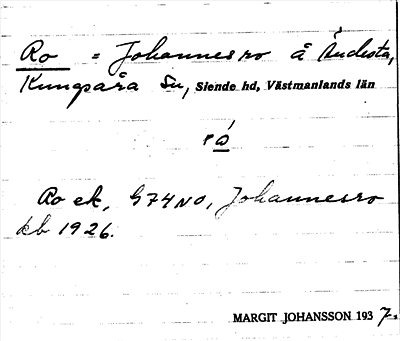 Ro = Johannesro å Ändesta,
Kungsåra Sn, Siende hd, Västmanlands län
Ro ek, G74NO, Johannesro
kb 1926.
MARGIT JOHANSSON 1937.